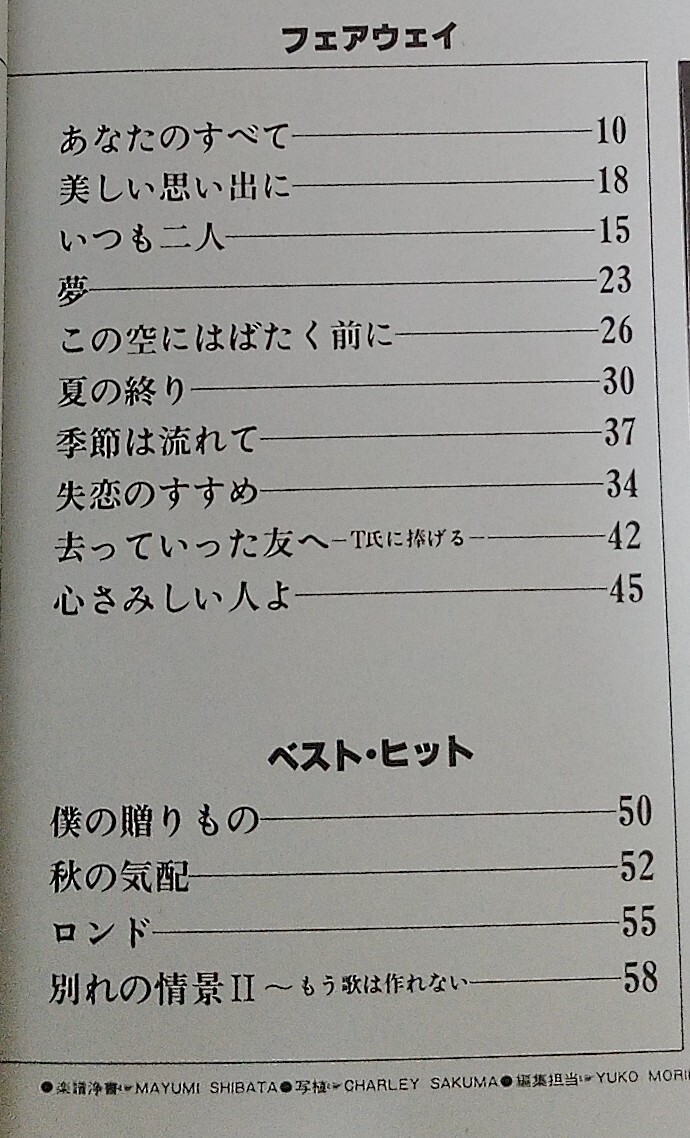 フェアウェイ
あなたのすべて 10
美しい思い出に 18
いつも二人 15
夢 23
この空にはばたく前に 26
夏の終り 30
季節は流れて 37
失恋のすすめ 34
去っていった友へ－T氏に捧げる－ 42
心さみしい人よ 45
ベスト・ヒット
僕の贈りもの 50
秋の気配 52
ロンド 55
別れの情景II～もう歌は作れない 58
●楽譜浄書☞MAYUMI SHIBATA●写植☞CHARLEY SAKUMA●編集担当☞YUKO